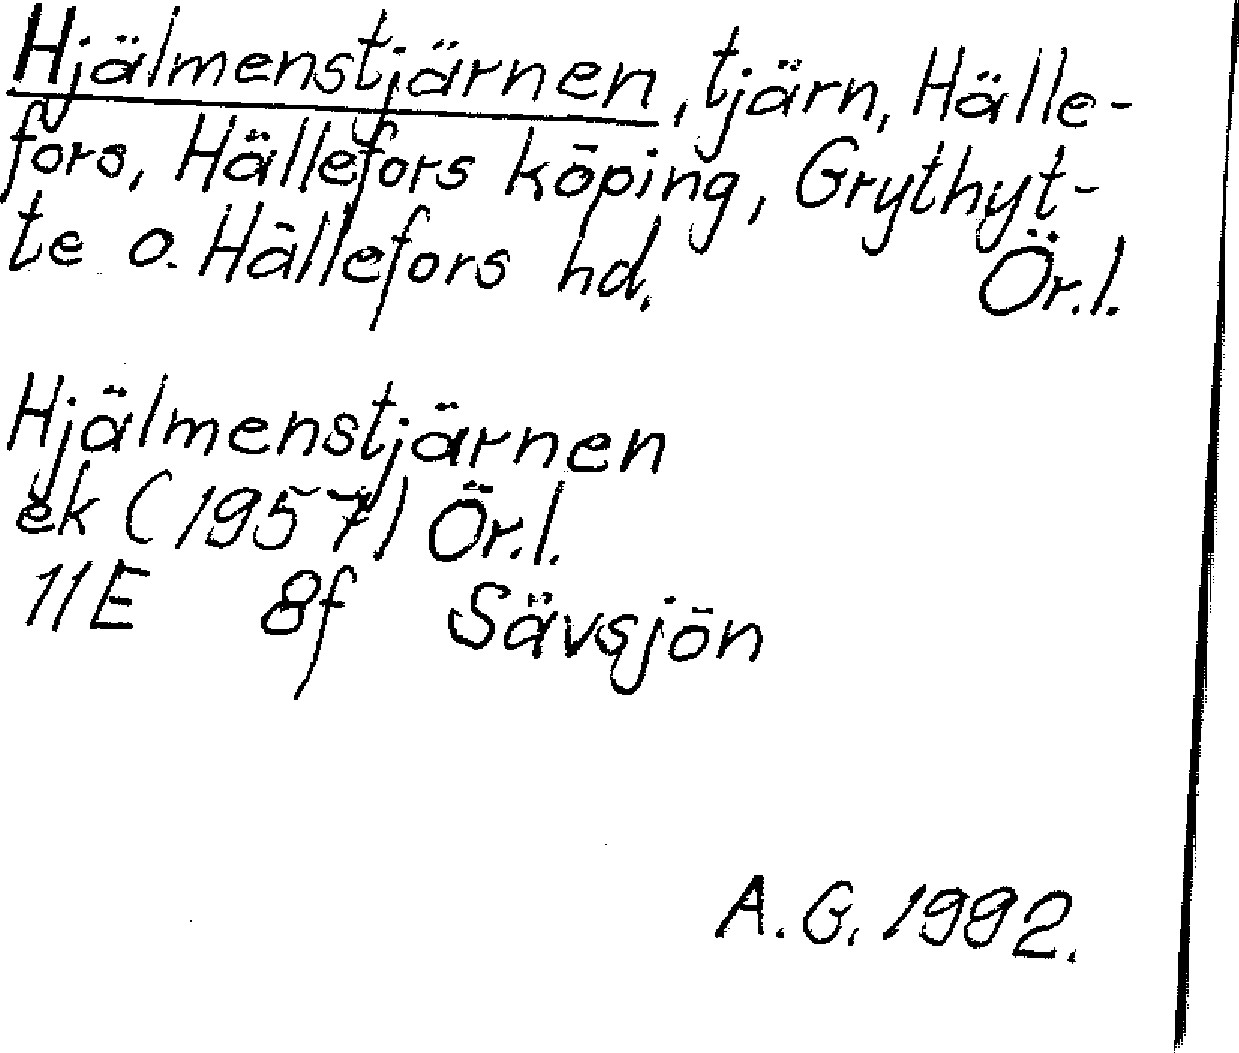 Hjälmenstjärnen, tjärn, Hälle-
fors, Hällefors köping, Grythyt-
te o. Hällefors hd. Ör.l.
Hjälmenstjärnen
ek (1957) Ör.l.
11E 8f Sävsjön
A.G. 1992.